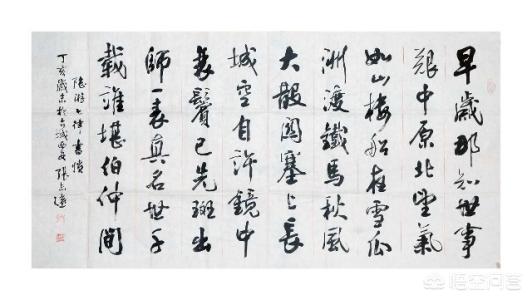 早歲那知世事
艱中原北望氣
如山樓船夜雪瓜
洲渡鐵馬秋風
大散關塞上長
城空自許鏡中
衰鬢已先斑出
師一表真名世千
載誰堪伯仲間
陸游七律書憤
丁亥歲末於古城西安張志遠
悟空问答